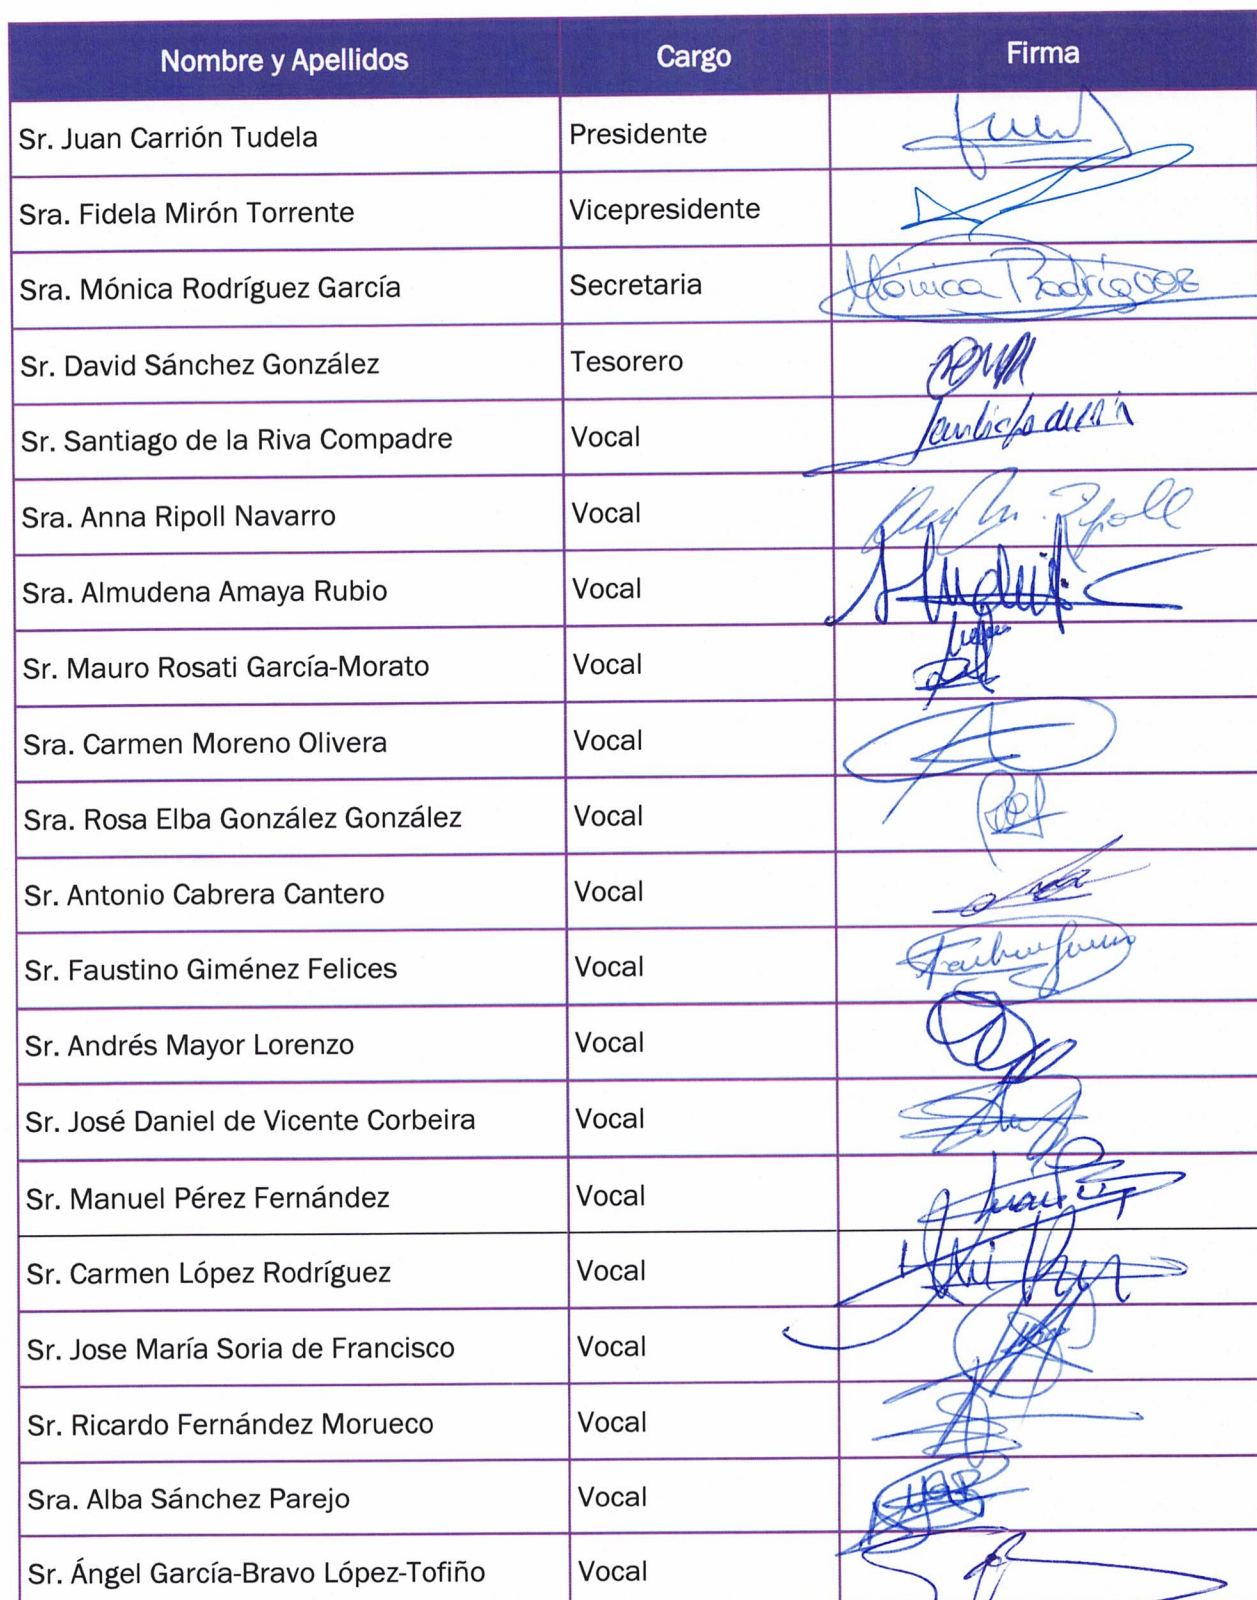 Nombre y Apellidos Cargo Firma
Sr. Juan Carrión Tudela Presidente
Sra. Fidela Mirón Torrente Vicepresidente
Sra. Mónica Rodríguez García Secretaria Mónica Rodríguez
Sr. David Sánchez González Tesorero
Sr. Santiago de la Riva Compadre Vocal
Sra. Anna Ripoll Navarro Vocal Ripoll
Sra. Almudena Amaya Rubio Vocal
Sr. Mauro Rosati García-Morato Vocal
Sra. Carmen Moreno Olivera Vocal
Sra. Rosa Elba González González Vocal
Sr. Antonio Cabrera Cantero Vocal
Sr. Faustino Giménez Felices Vocal
Sr. Andrés Mayor Lorenzo Vocal
Sr. José Daniel de Vicente Corbeira Vocal
Sr. Manuel Pérez Fernández Vocal
Sr. Carmen López Rodríguez Vocal
Sr. Jose María Soria de Francisco Vocal
Sr. Ricardo Fernández Morueco Vocal
Sra. Alba Sánchez Parejo Vocal
Sr. Ángel García-Bravo López-Tofiño Vocal